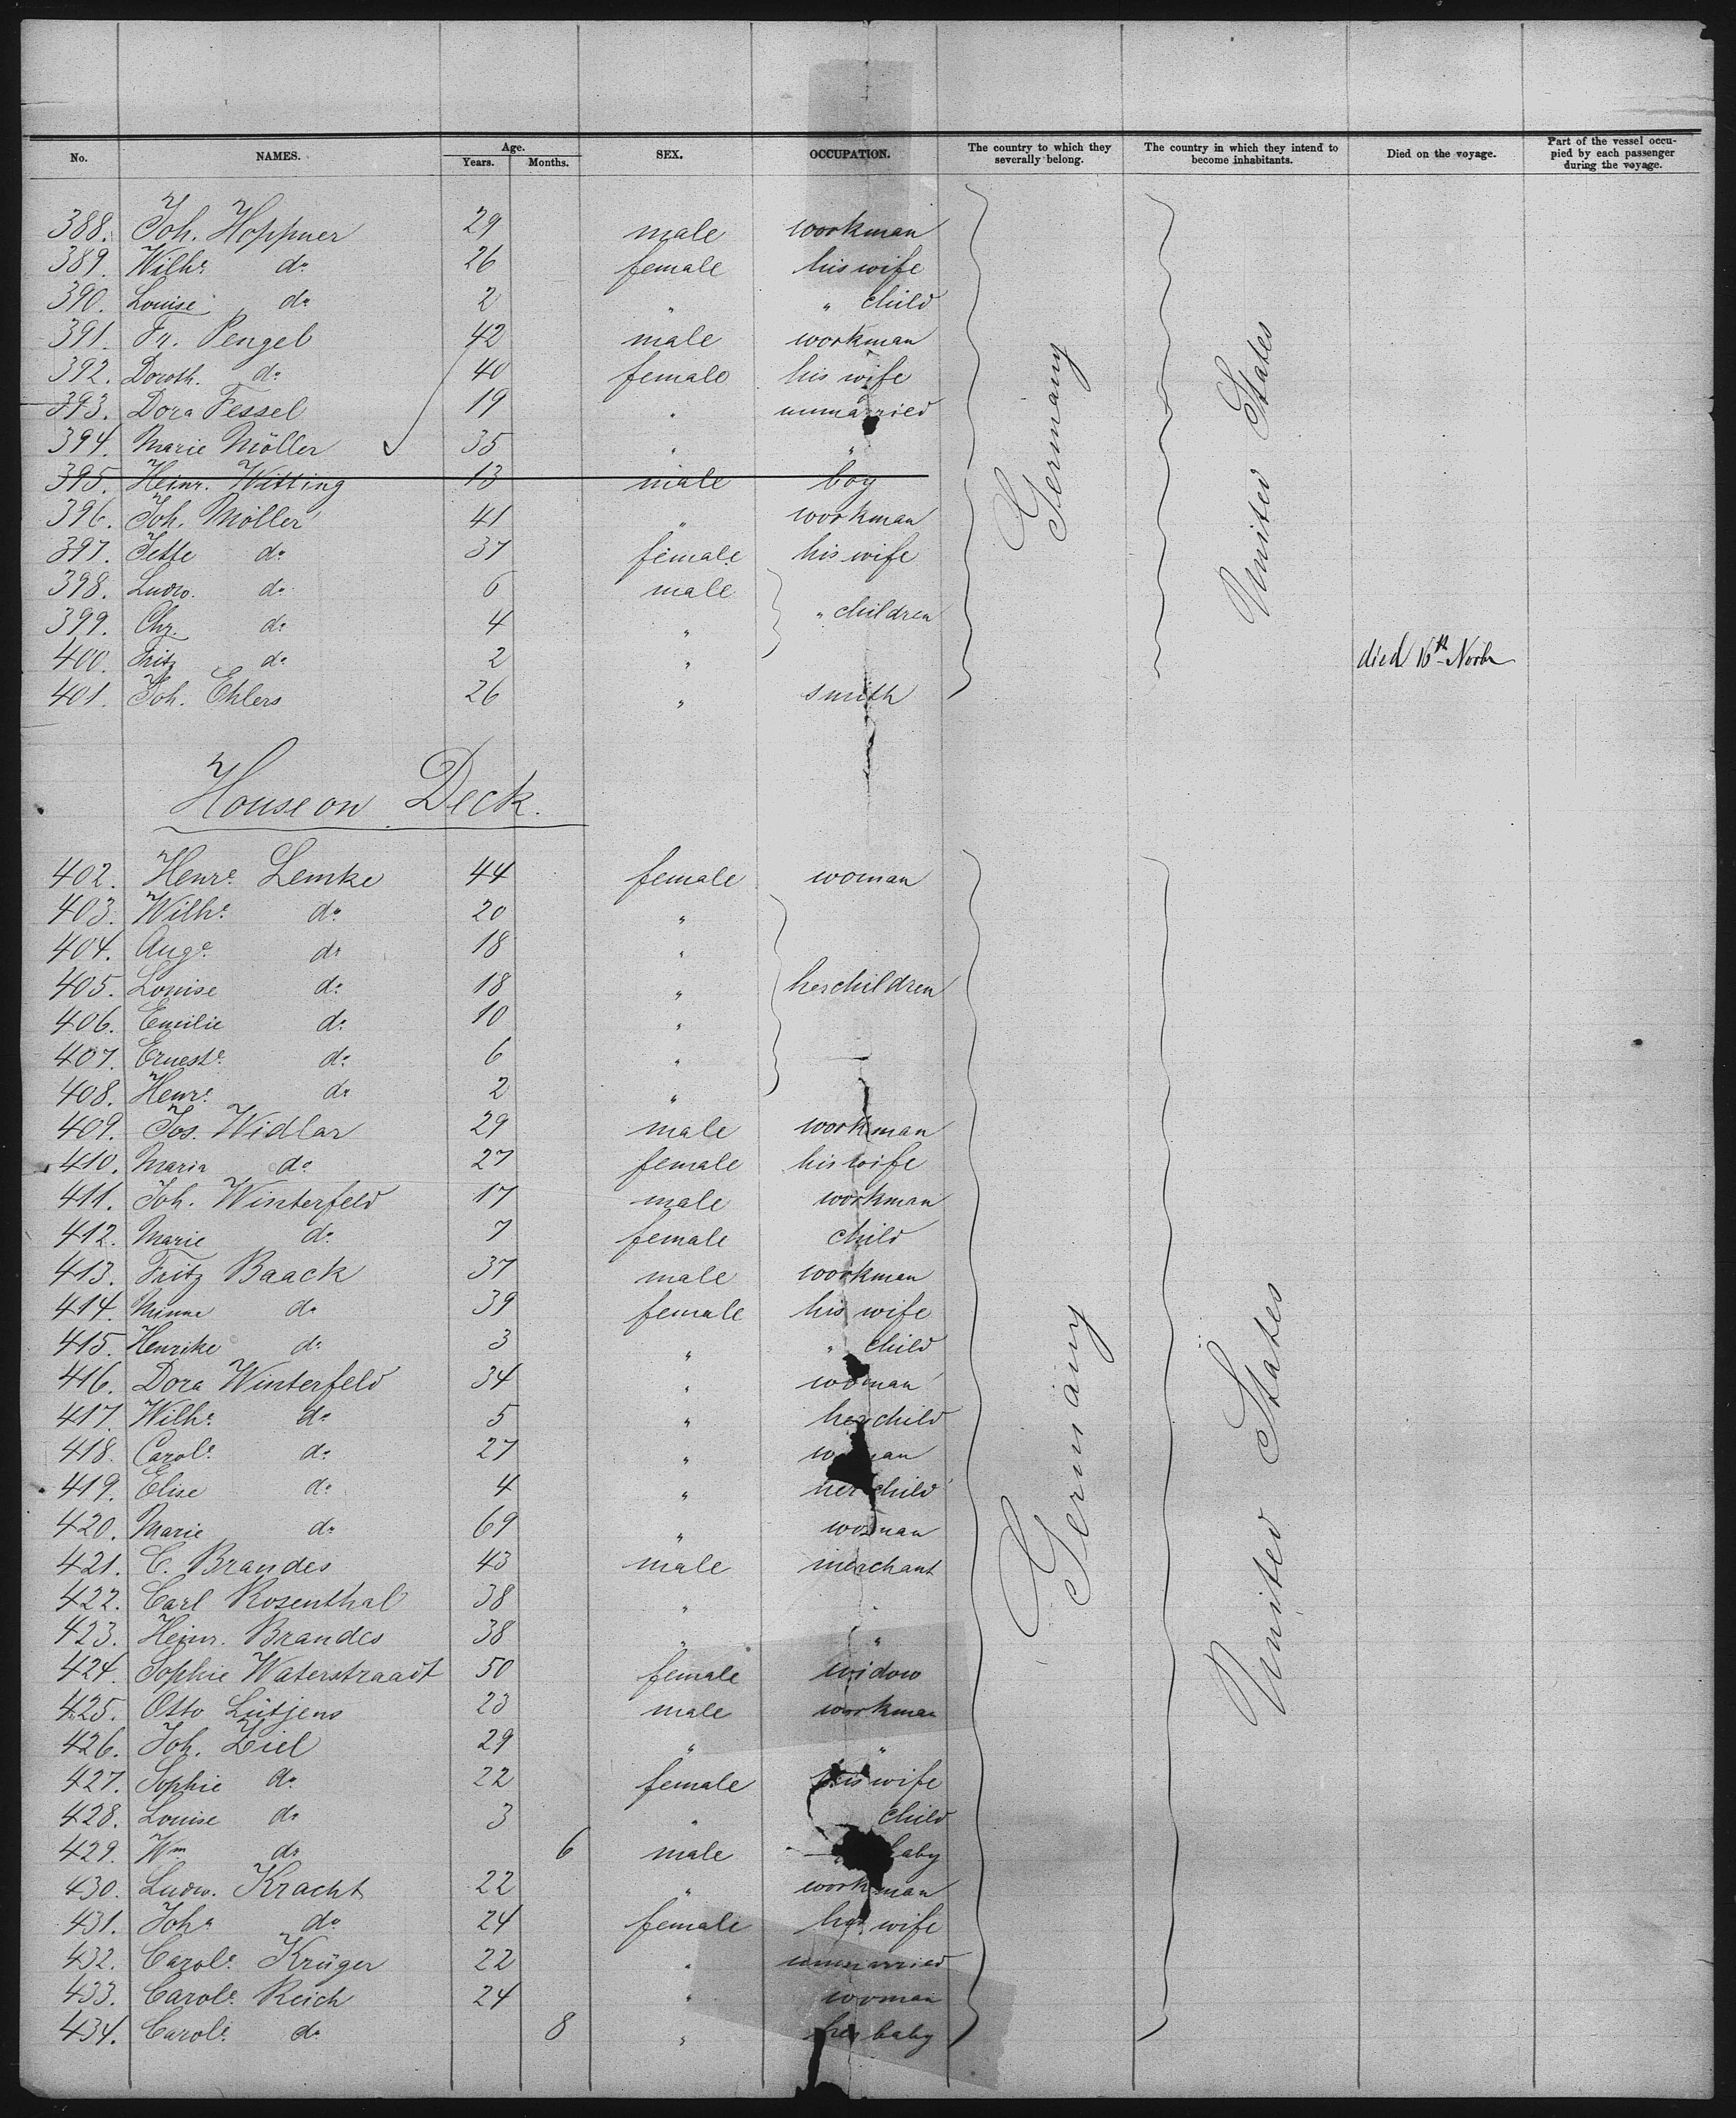 No. NAMES. Age. Years. Months. SEX. OCCUPATION. The country to which they severally belong. The country in which they intend to become inhabitants. Died on the voyage. Part of the vessel occupied by each passenger during the voyage.
388. Joh. Hoppner 29 male workman
389. Wilhe. do 26 female his wife
390. Louise do 2 " " child
391. Fr. Pengel 42 male workman
392. Doroth. do 40 female his wife
393. Dora Fessel 19 " unmarried
394. Marie Möller 35 " "
395. Heinr. Witting 13 male boy
396. Joh. Möller 41 " workman
397. Jette do 37 female his wife
398. Ludw. do 6 male
399. Chr. do 4 " " children
400. Fritz do 2 " died 16th Novbr
401. Joh. Ehlers 26 " smith
Germany
United States
House on Deck.
402. Henre. Lemke 44 female woman
403. Wilhe. do 20 "
404. Auge. do 18 "
405. Louise do 18 " her children
406. Emilie do 10 "
407. Erneste. do 6 "
408. Henre. do 2 "
409. Jos. Widlar 29 male workman
410. Maria do 27 female his wife
411. Joh. Winterfeld 17 male workman
412. Marie do 7 female child
413. Fritz Baack 37 male workman
414. Minna do 39 female his wife
415. Henrike do 3 " " child
416. Dora Winterfeld 34 " woman
417. Wilhe. do 5 " her child
418. Carole. do 27 " woman
419. Elise do 4 " her child
420. Marie do 69 " woman
421. C. Brandes 43 male merchant
422. Carl Rosenthal 38 " "
423. Heinr. Brandes 38 " "
424. Sophie Waterstraadt 50 female widow
425. Otto Lütjens 23 male workman
426. Joh. Ziel 29 " "
427. Sophie do 22 female his wife
428. Louise do 3 " child
429. Wm do 6 male baby
430. Ludw. Kracht 22 " workman
431. Joha do 24 female his wife
432. Carole. Krüger 22 " unmarried
433. Carole. Reich 24 " woman
434. Carole. do 8 " her baby
Germany
United States